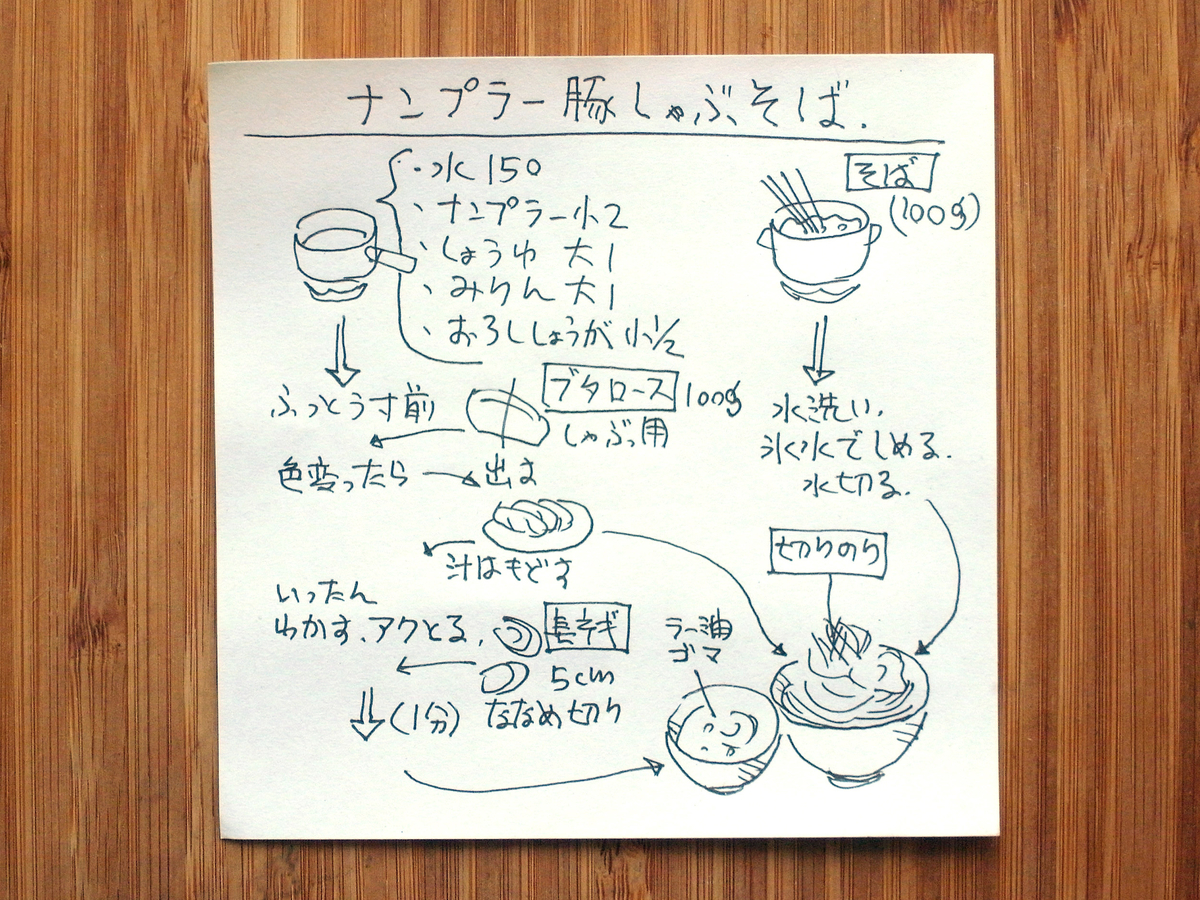 ナンプラー豚しゃぶそば.
・水 150
、ナンプラー小2
、しょうゆ 大1
、みりん大1
、おろししょうが 小1/2
ふっとう寸前
ブタロース 100g
しゃぶっ用
色変ったら
出す
汁はもどす
いったん
わかす、アクとる、
長ネギ
5cm
ななめ切り
(1分)
そば
(100g)
水洗い、
氷水でしめる.
水切る.
切りのり
ラー油
ゴマ